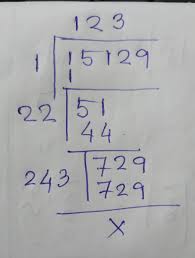 123
1 15129
1
22 51
44
243 729
729
X